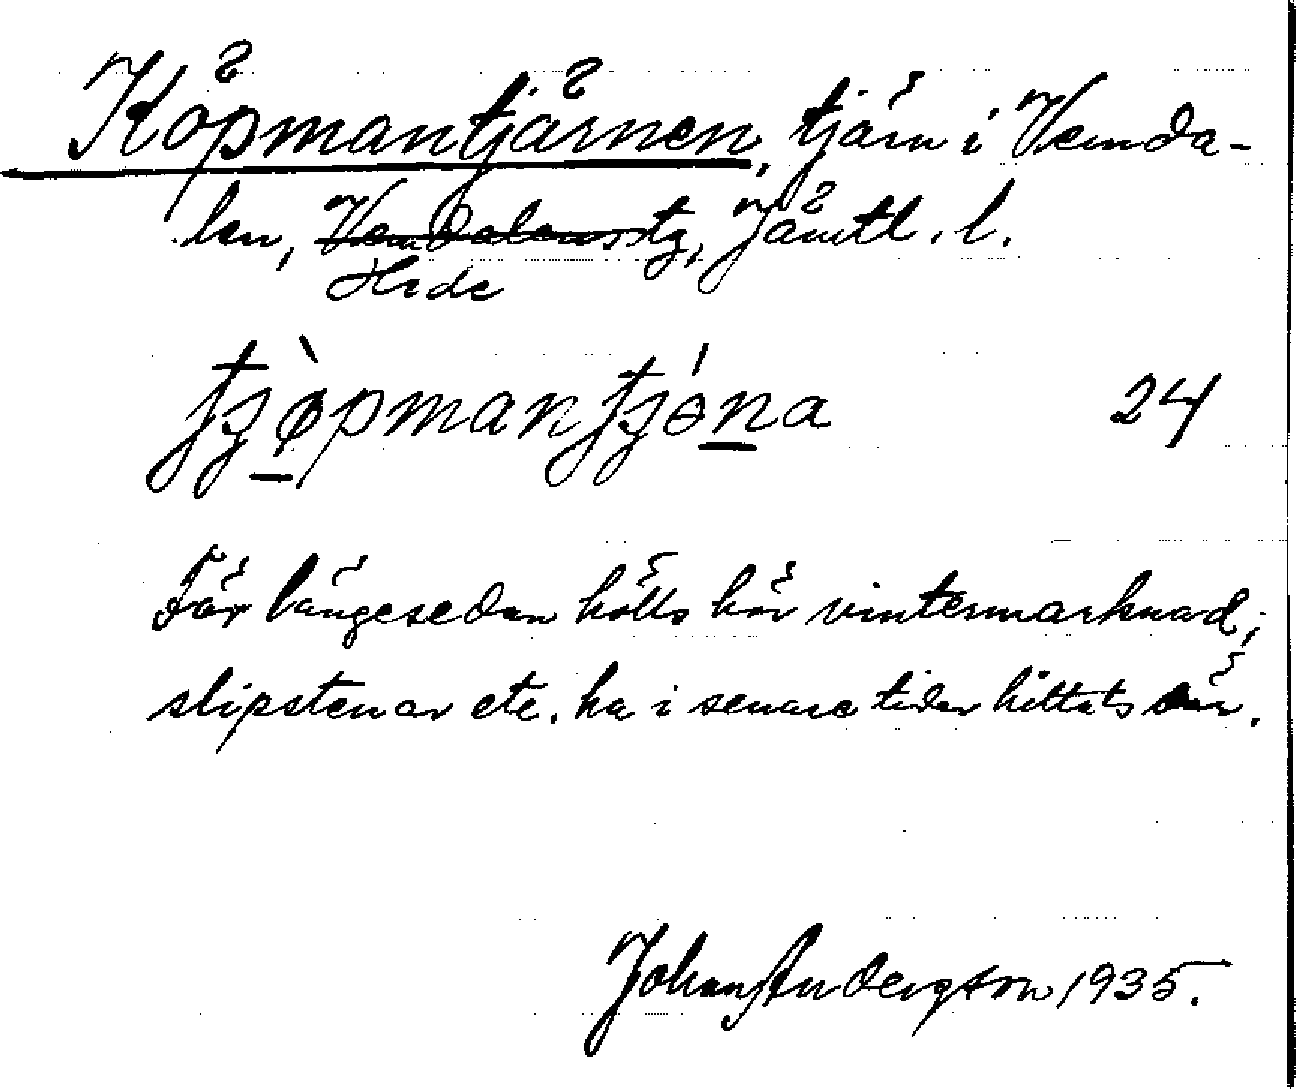 Köpmantjärnen, tjärn i Vemda-
len, Vemdalens tg, Jämtl. l.
Hede
tjö̀pmantjóna 24
För längesedan hölls här vintermarknad;
slipstenar etc. ha i senare tider hittats där.
Johan Andergson 1935.